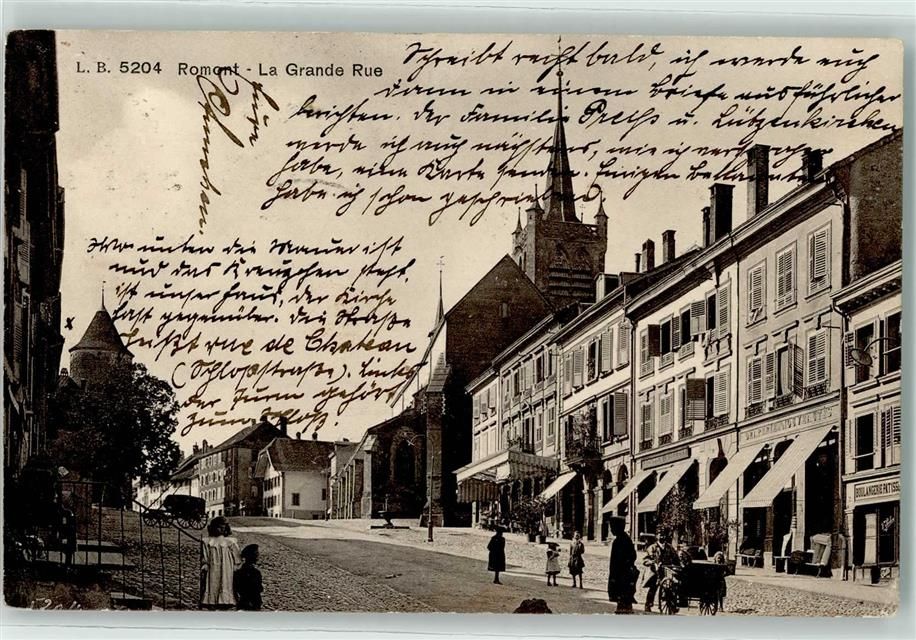 L. B. 5204 Romont - La Grande Rue
Schreibt recht bald, ich werde euch
dann in einem Briefe ausführlicher
berichten. Der Familie Preiss u. Lützenkirchen
werde ich auch nächstens, wie ich versprochen
habe, eine Karte senden. Einigen Bekannten
habe ich schon geschrieben
Wo unten die Mauer ist
und das Kreuzchen steht
ist unser Haus, der Kirche
fast gegenüber. Die Straße
heißt rue de Chateau
(Schloßstraße). Links
der Turm gehört
zum Schloß
x
BOULANGERIE PATISS